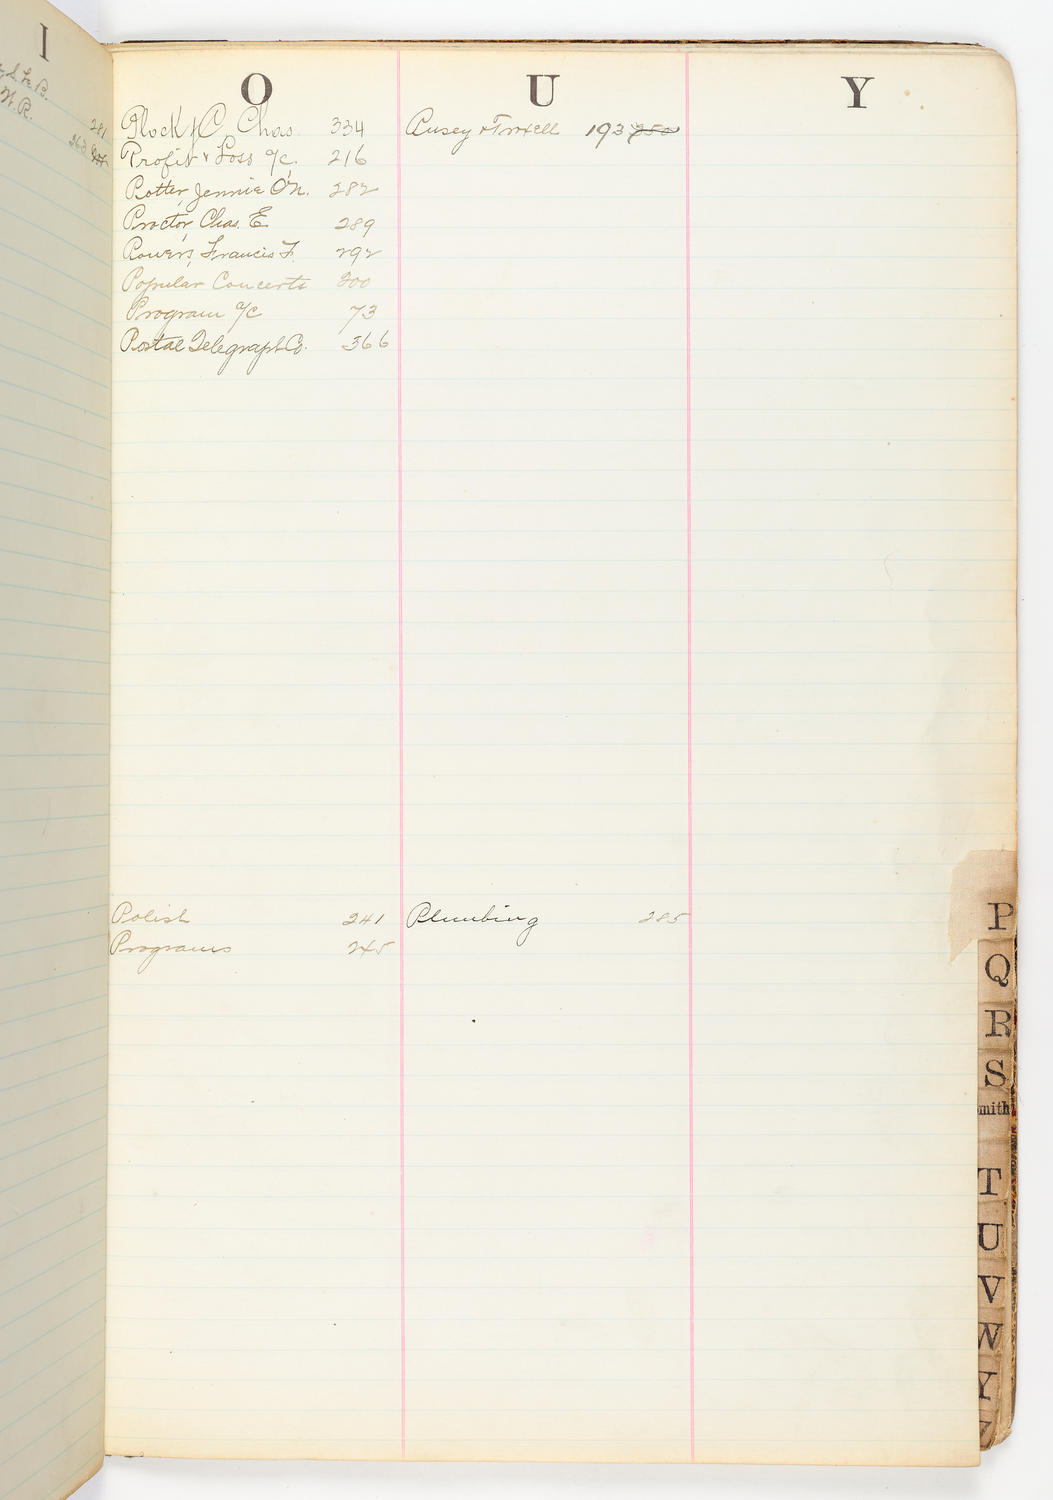 I
S. L. B.
W. R.
281
O U Y
Plock, C. Chas. 334
Profit & Loss a/c. 216
Potter, Jennie O'N. 282
Proctor, Chas. E 289
Powers, Francis F. 292
Popular Concerts 200
Program a/c 73
Postal Telegraph Co. 366
Pusey & Troxell 193 250
Polish 241
Programs 245
Plumbing 285
P
Q
R
S
mith
T
U
V
W
Y
Z